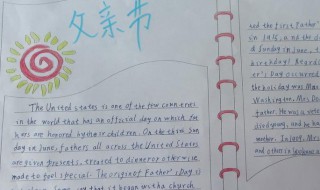 父亲节
The United states is one of the few
in the world that has an official day on which
hers are honored by their children. On the third Sun
day in june, fathers all across the United States
are given presents, treated to dinner or otherwise
made to feel special. The origin of Father's Day is
that it began with a church
and the first Father
in
d sunday in june,
birthday!
er's Day occurred
the holiday was Mrs
Washington, Mrs. Do
father. He was a vete
died young, and he
mother. In 1909, Mrs
and others in